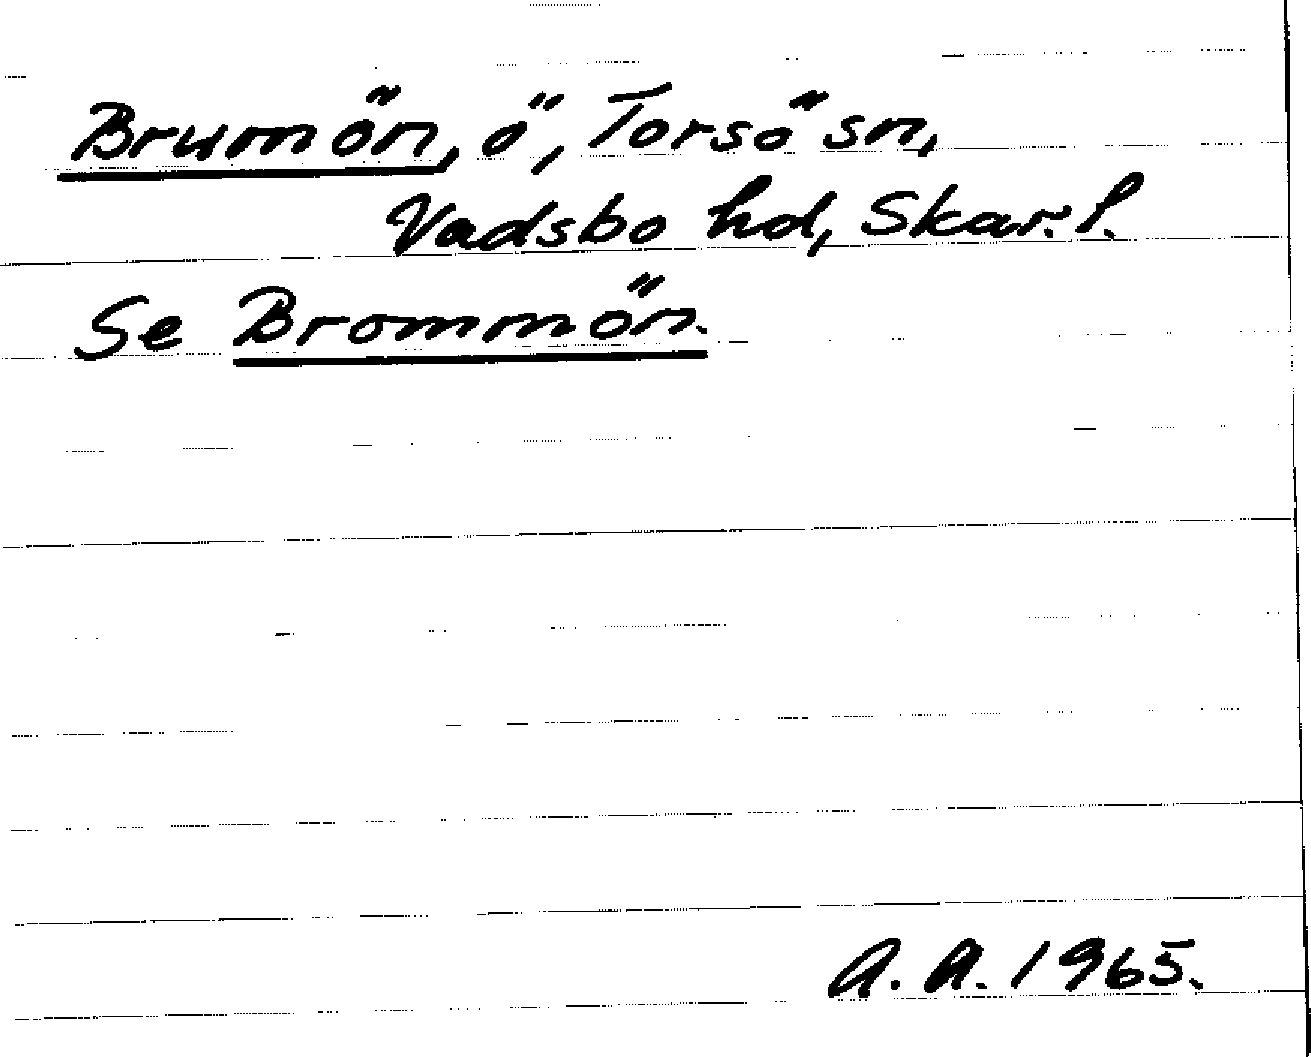 Brumön, ö, Torsö sn,
Vadsbo hd, Skar. l.
Se Brommön.
A. A. 1965.